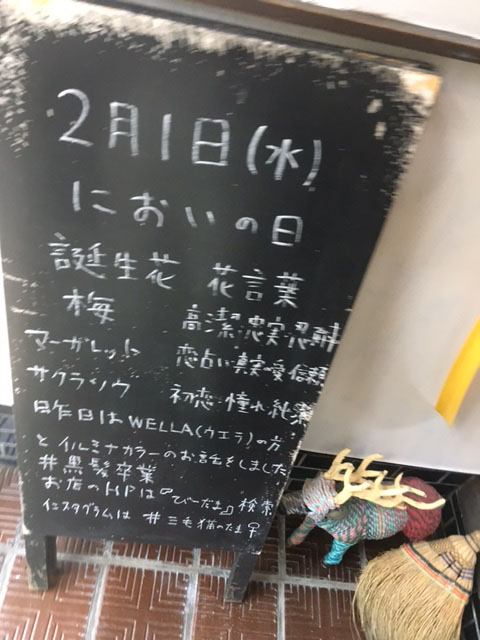 2月1日(水)
においの日
誕生花 花言葉
梅 高潔 忠実 忍耐
マーガレット 恋占い 真実の愛 信頼
サクラソウ 初恋 憧れ 純潔
昨日はWELLA(ウエラ)の方
とイルミナカラーのお話をしました
#黒髪卒業
お店のHPは『びーだま』検索
インスタグラムは #三毛猫のたま